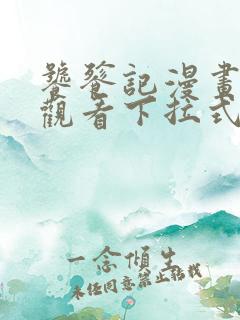 饕餮記漫畫
觀看下拉式
一念傾生
未經同意禁止轉載